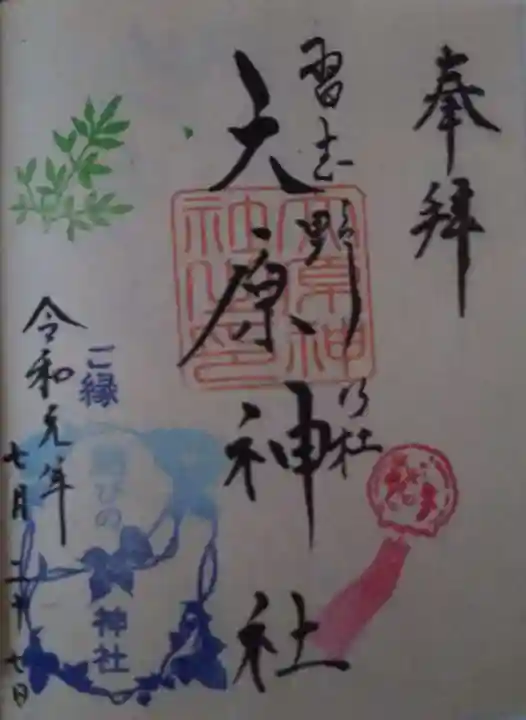 奉拝
習志野乃杜
大原神社
大原神社之印
ご縁
結びの
神社
令和元年
七月二十七日